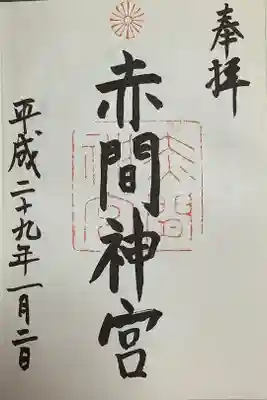 奉拝
赤間神宮
平成二十九年一月二日